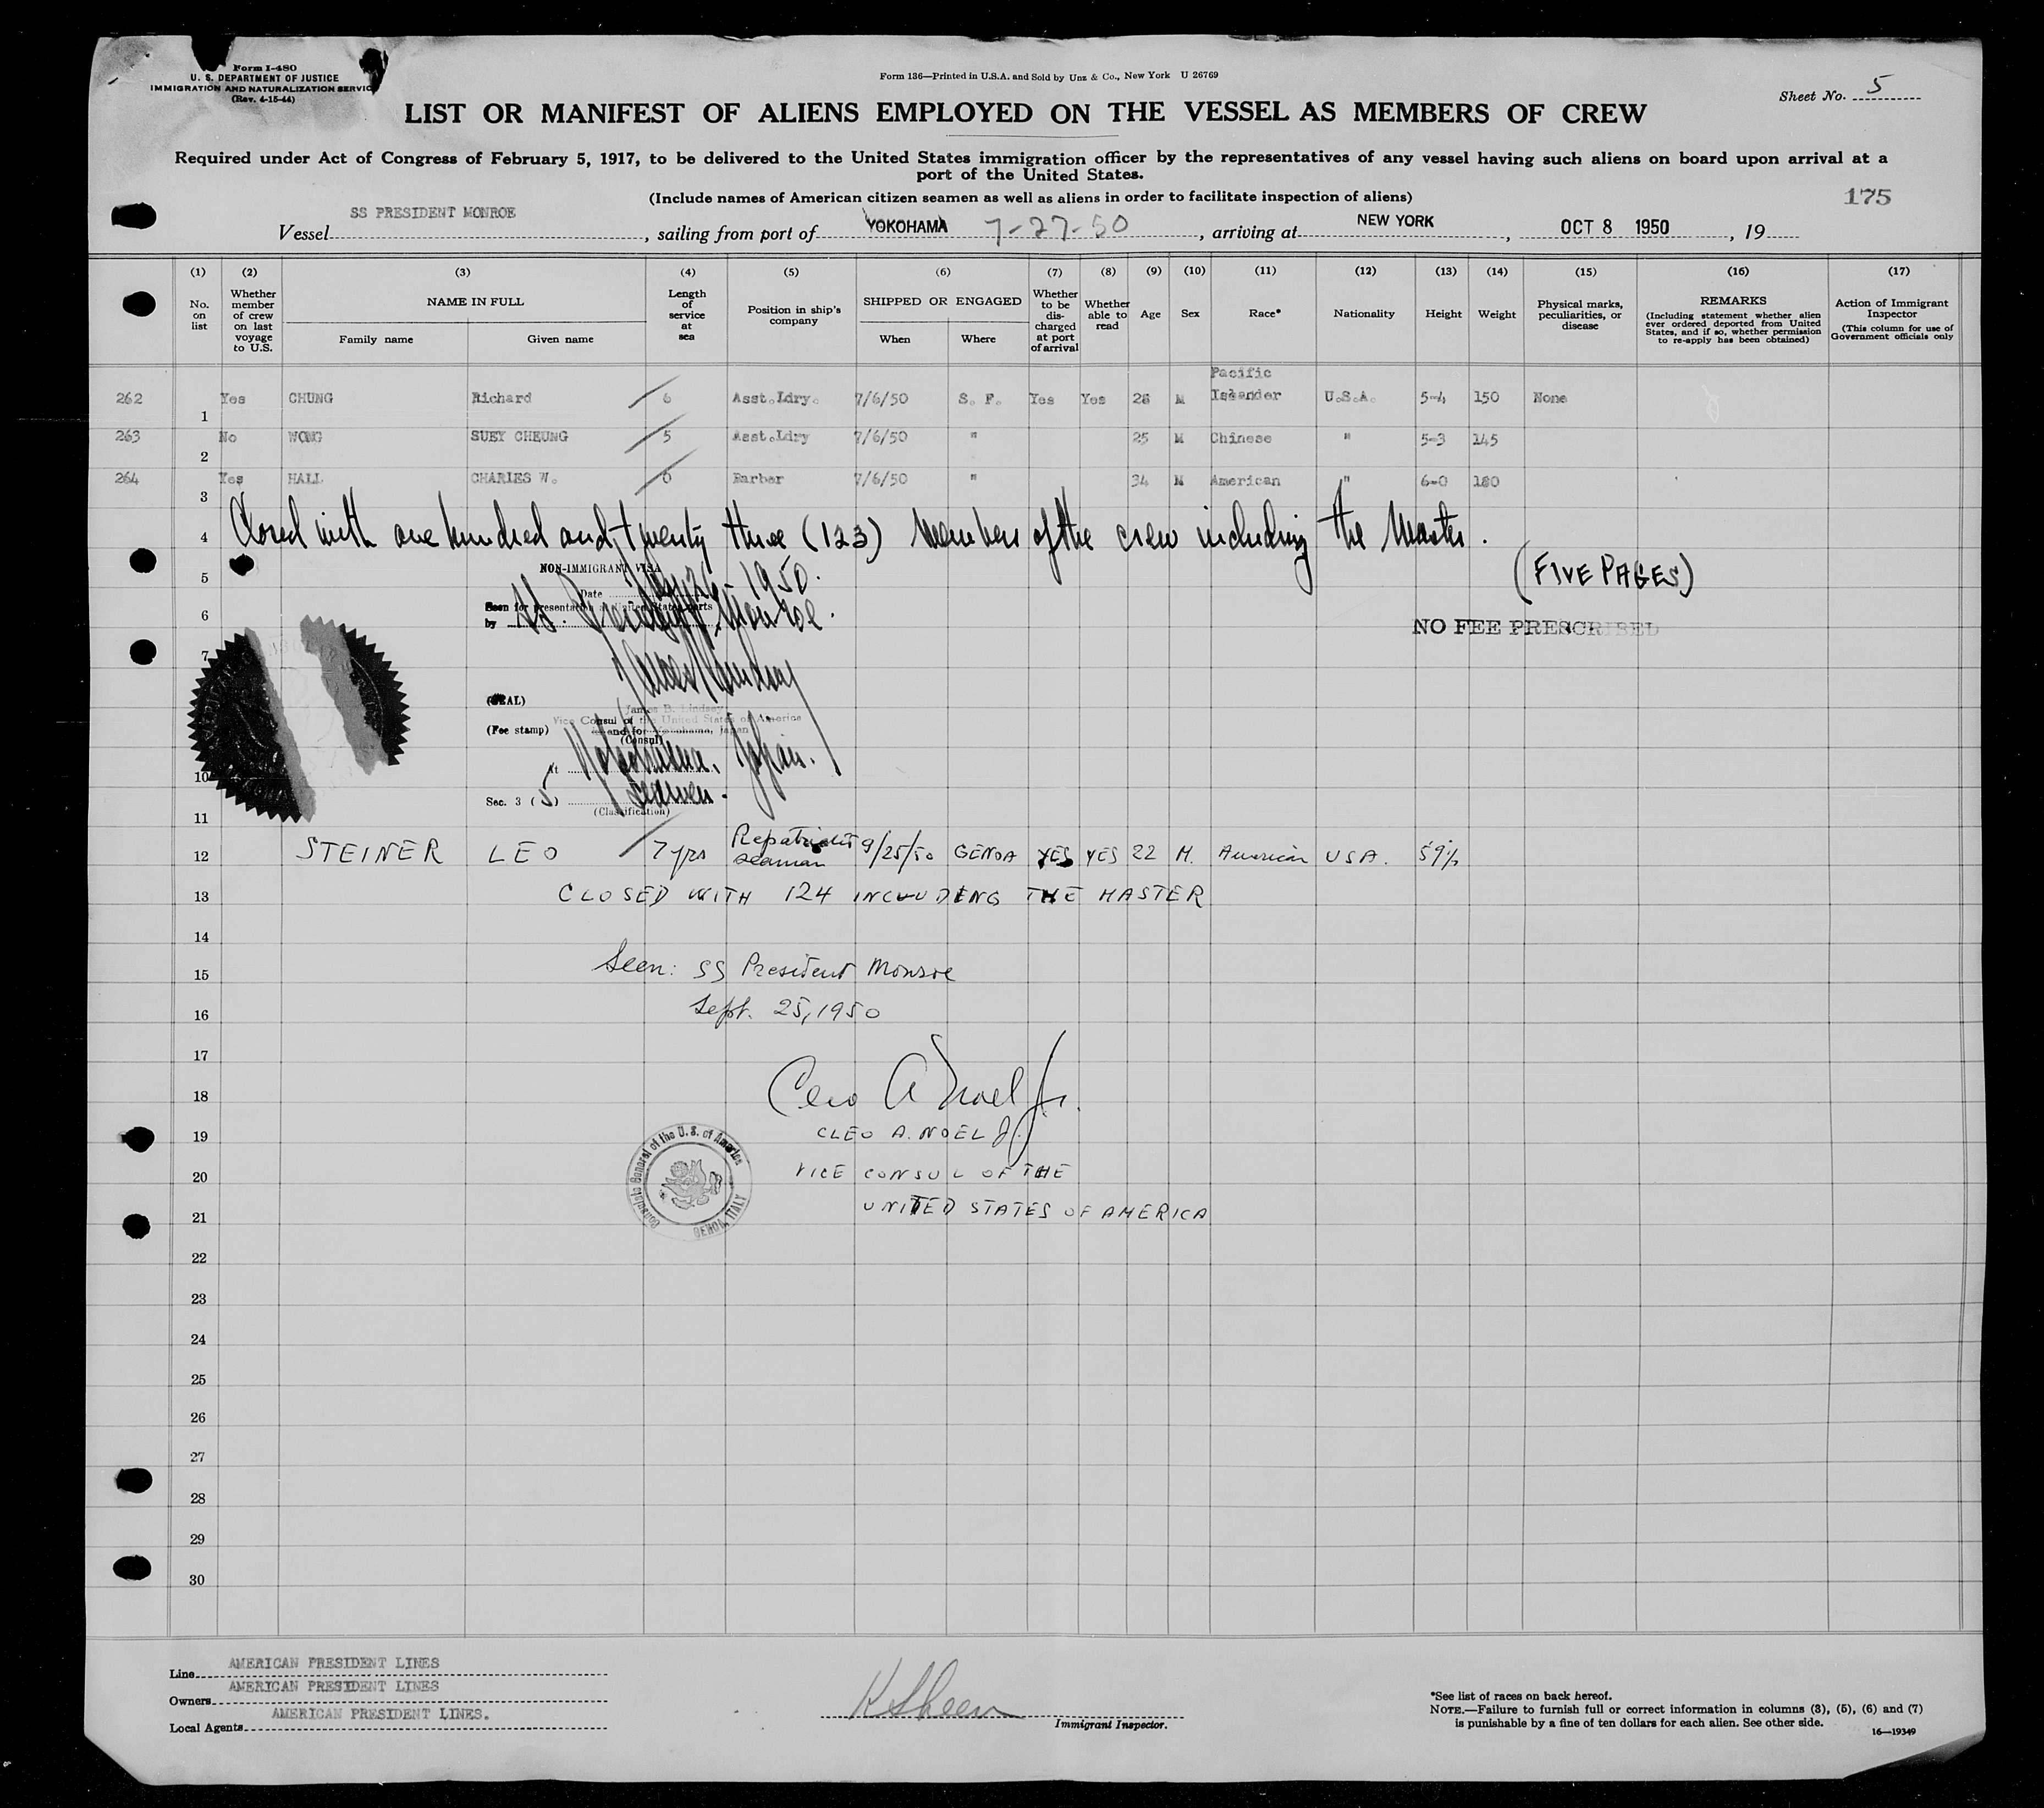 Form I-480
U. S. DEPARTMENT OF JUSTICE
IMMIGRATION AND NATURALIZATION SERVICE
(Rev. 4-15-44)
Form 136—Printed in U.S.A. and Sold by Unz & Co., New York U 26769
Sheet No. 5
LIST OR MANIFEST OF ALIENS EMPLOYED ON THE VESSEL AS MEMBERS OF CREW
Required under Act of Congress of February 5, 1917, to be delivered to the United States immigration officer by the representatives of any vessel having such aliens on board upon arrival at a
port of the United States.
(Include names of American citizen seamen as well as aliens in order to facilitate inspection of aliens)
175
Vessel SS PRESIDENT MONROE, sailing from port of YOKOHAMA 7-27-50, arriving at NEW YORK, OCT 8 1950, 19
(1) (2) (3) (4) (5) (6) (7) (8) (9) (10) (11) (12) (13) (14) (15) (16) (17)
No. on list
Whether member of crew on last voyage to U.S.
NAME IN FULL
Family name
Given name
Length of service at sea
Position in ship's company
SHIPPED OR ENGAGED
When
Where
Whether to be discharged at port of arrival
Whether able to read
Age
Sex
Race*
Nationality
Height
Weight
Physical marks, peculiarities, or disease
REMARKS
(Including statement whether alien ever ordered deported from United States, and if so, whether permission to re-apply has been obtained)
Action of Immigrant Inspector
(This column for use of Government officials only
262 1 Yes CHUNG Richard 6 Asst.Ldry. 7/6/50 S. F. Yes Yes 28 M Pacific Islander U.S.A. 5-4 150 None
263 2 No WONG SUEY CHEUNG 5 Asst.Ldry 7/6/50 " 25 M Chinese " 5-3 145
264 3 Yes HALL CHARLES W. 6 Barber 7/6/50 " 34 M American " 6-0 180
4 Closed with one hundred and twenty three (123) members of the crew including the Master.
5 (FIVE PAGES)
NON-IMMIGRANT VISA
Date July 26-1950.
Seen for presentation at United States ports
6 by SS. President Monroe.
NO FEE PRESCRIBED
7
(SEAL)
James B. Lindsey
Vice Consul of the United States of America
(Fee stamp) in and for Yokohama, Japan
(Consul)
10 At Yokohama, Japan.
Sec. 3 (5) Seamen.
(Classification)
11
12 STEINER LEO 7 yrs Repatriated seaman 9/25/50 GENOA YES YES 22 M. American USA. 5'9½
13 CLOSED WITH 124 INCLUDING THE MASTER
14
15 Seen: SS President Monroe
16 Sept. 25, 1950
17
18 Cleo A Noel Jr.
19 CLEO A. NOEL Jr.
20 VICE CONSUL OF THE
21 UNITED STATES OF AMERICA
Consulate General of the U. S. of America
GENOA, ITALY
22
23
24
25
26
27
28
29
30
Line AMERICAN PRESIDENT LINES
Owners AMERICAN PRESIDENT LINES
Local Agents AMERICAN PRESIDENT LINES.
K Sheen
Immigrant Inspector.
*See list of races on back hereof.
NOTE.—Failure to furnish full or correct information in columns (3), (5), (6) and (7)
is punishable by a fine of ten dollars for each alien. See other side.
16—19349